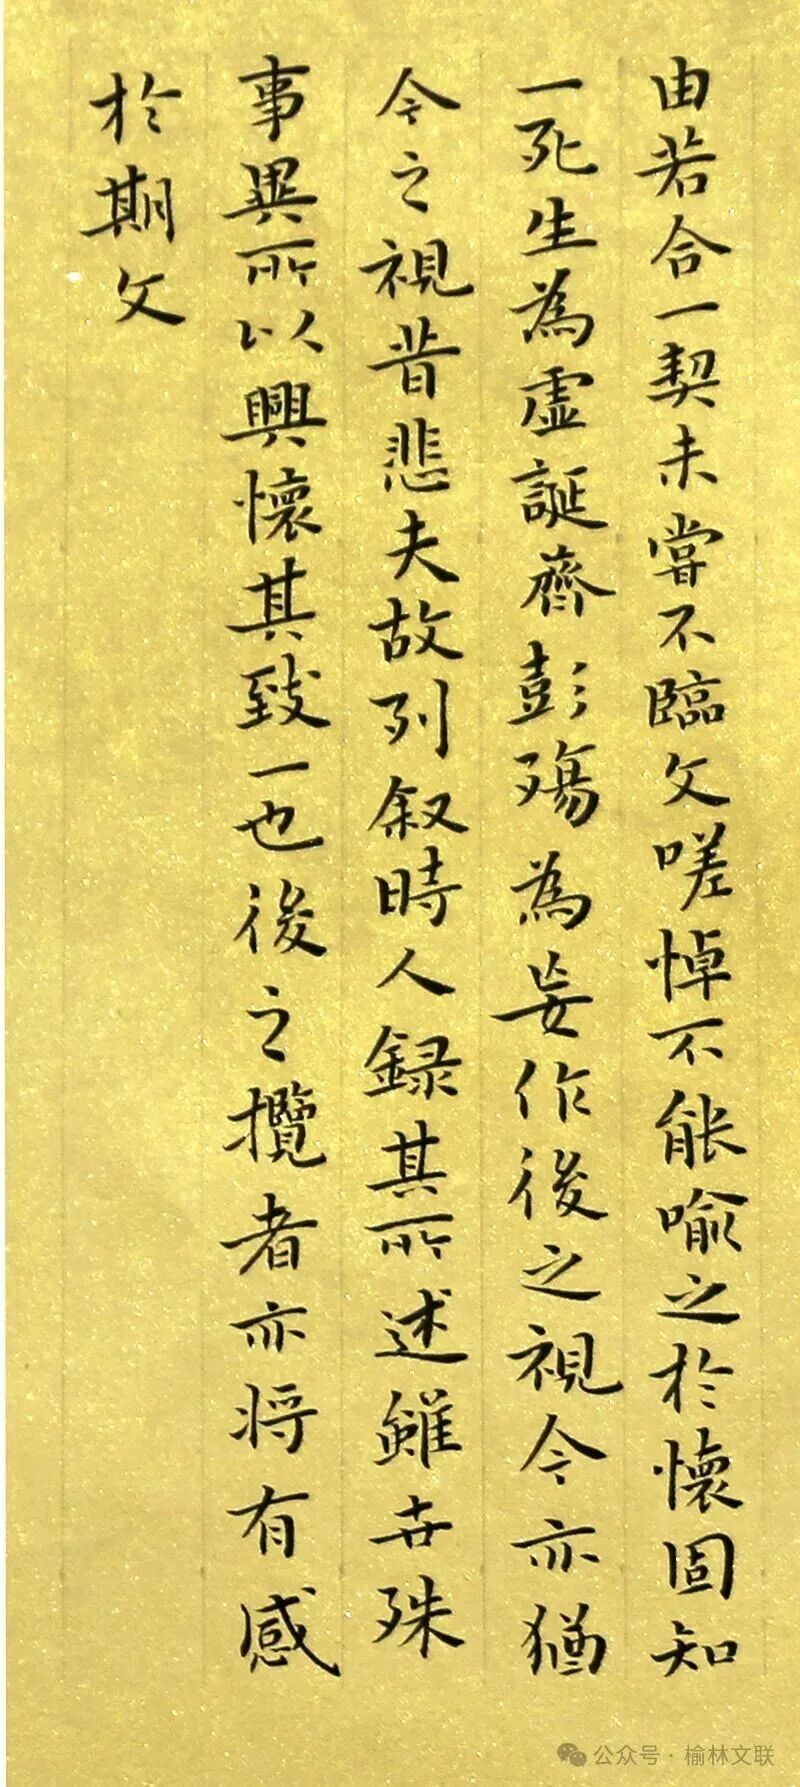 由若合一契未嘗不臨文嗟悼不能喻之於懷固知
一死生為虛誕齊彭殤為妄作後之視今亦猶
今之視昔悲夫故列叙時人録其所述雖世殊
事異所以興懷其致一也後之攬者亦將有感
於期文
公众号 · 榆林文联